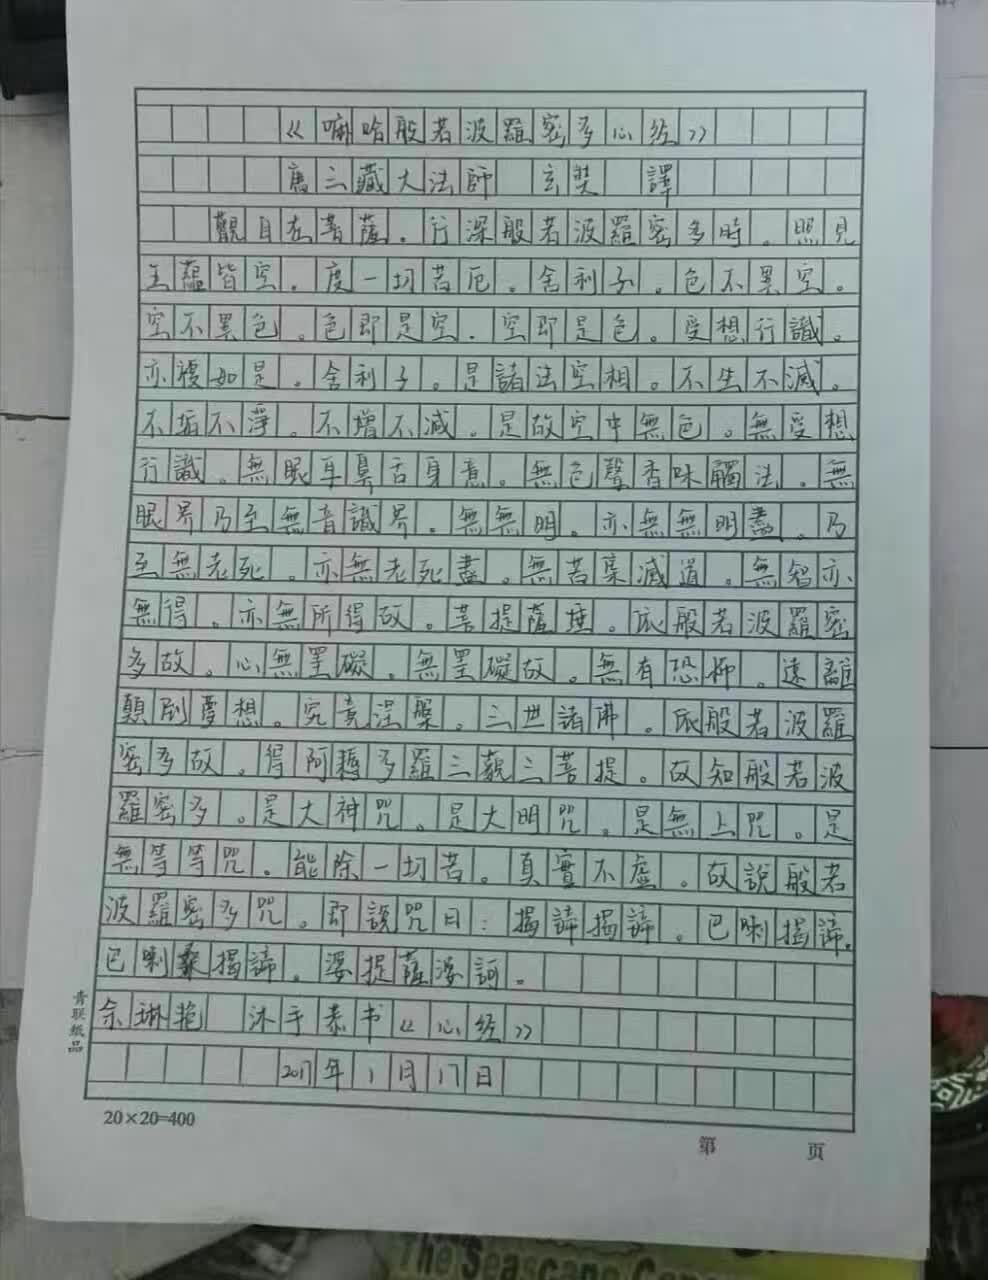 《嘛哈般若波羅密多心经》
唐三藏大法師 玄奘 譯
觀自在菩薩。行深般若波羅密多時。照見
五蘊皆空。度一切苦厄。舍利子。色不異空。
空不異色。色即是空。空即是色。受想行識。
亦複如是。舍利子。是諸法空相。不生不滅。
不垢不淨。不增不减。是故空中無色。無受想
行識。無眼耳鼻舌身意。無色聲香味觸法。無
眼界乃至無意識界。無無明。亦無無明盡。乃
至無老死。亦無老死盡。無苦集滅道。無智亦
無得。亦無所得故。菩提薩埵。依般若波羅密
多故。心無罣礙。無罣礙故。無有恐怖。遠離
顛倒夢想。究竟涅槃。三世諸佛。依般若波羅
密多故。得阿耨多羅三藐三菩提。故知般若波
羅密多。是大神咒。是大明咒。是無上咒。是
無等等咒。能除一切苦。真實不虛。故說般若
波羅密多咒。即說咒曰：揭諦揭諦。巴喇揭諦。
巴喇桑揭諦。婆提薩婆訶。
余琳艳 沐手恭书《心经》
2017年1月17日
青联纸品
20×20=400
第 页
The Seascape